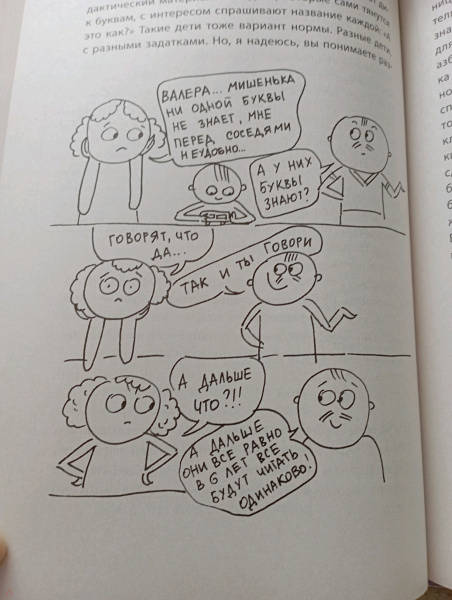 к буквам, с интересом спрашивают название каждой: «А
это как?» Такие дети тоже вариант нормы. Разные дети,
с разными задатками. Но, я надеюсь, вы понимаете раз-
ВАЛЕРА... МИШЕНЬКА
НИ ОДНОЙ БУКВЫ
НЕ ЗНАЕТ, МНЕ
ПЕРЕД СОСЕДЯМИ
НЕУДОБНО...
А У НИХ
БУКВЫ
ЗНАЮТ?
ГОВОРЯТ, ЧТО
ДА...
ТАК И ТЫ ГОВОРИ
А ДАЛЬШЕ
ЧТО?!!
А ДАЛЬШЕ
ОНИ ВСЕ РАВНО
В 6 ЛЕТ ВСЕ
БУДУТ ЧИТАТЬ
ОДИНАКОВО.